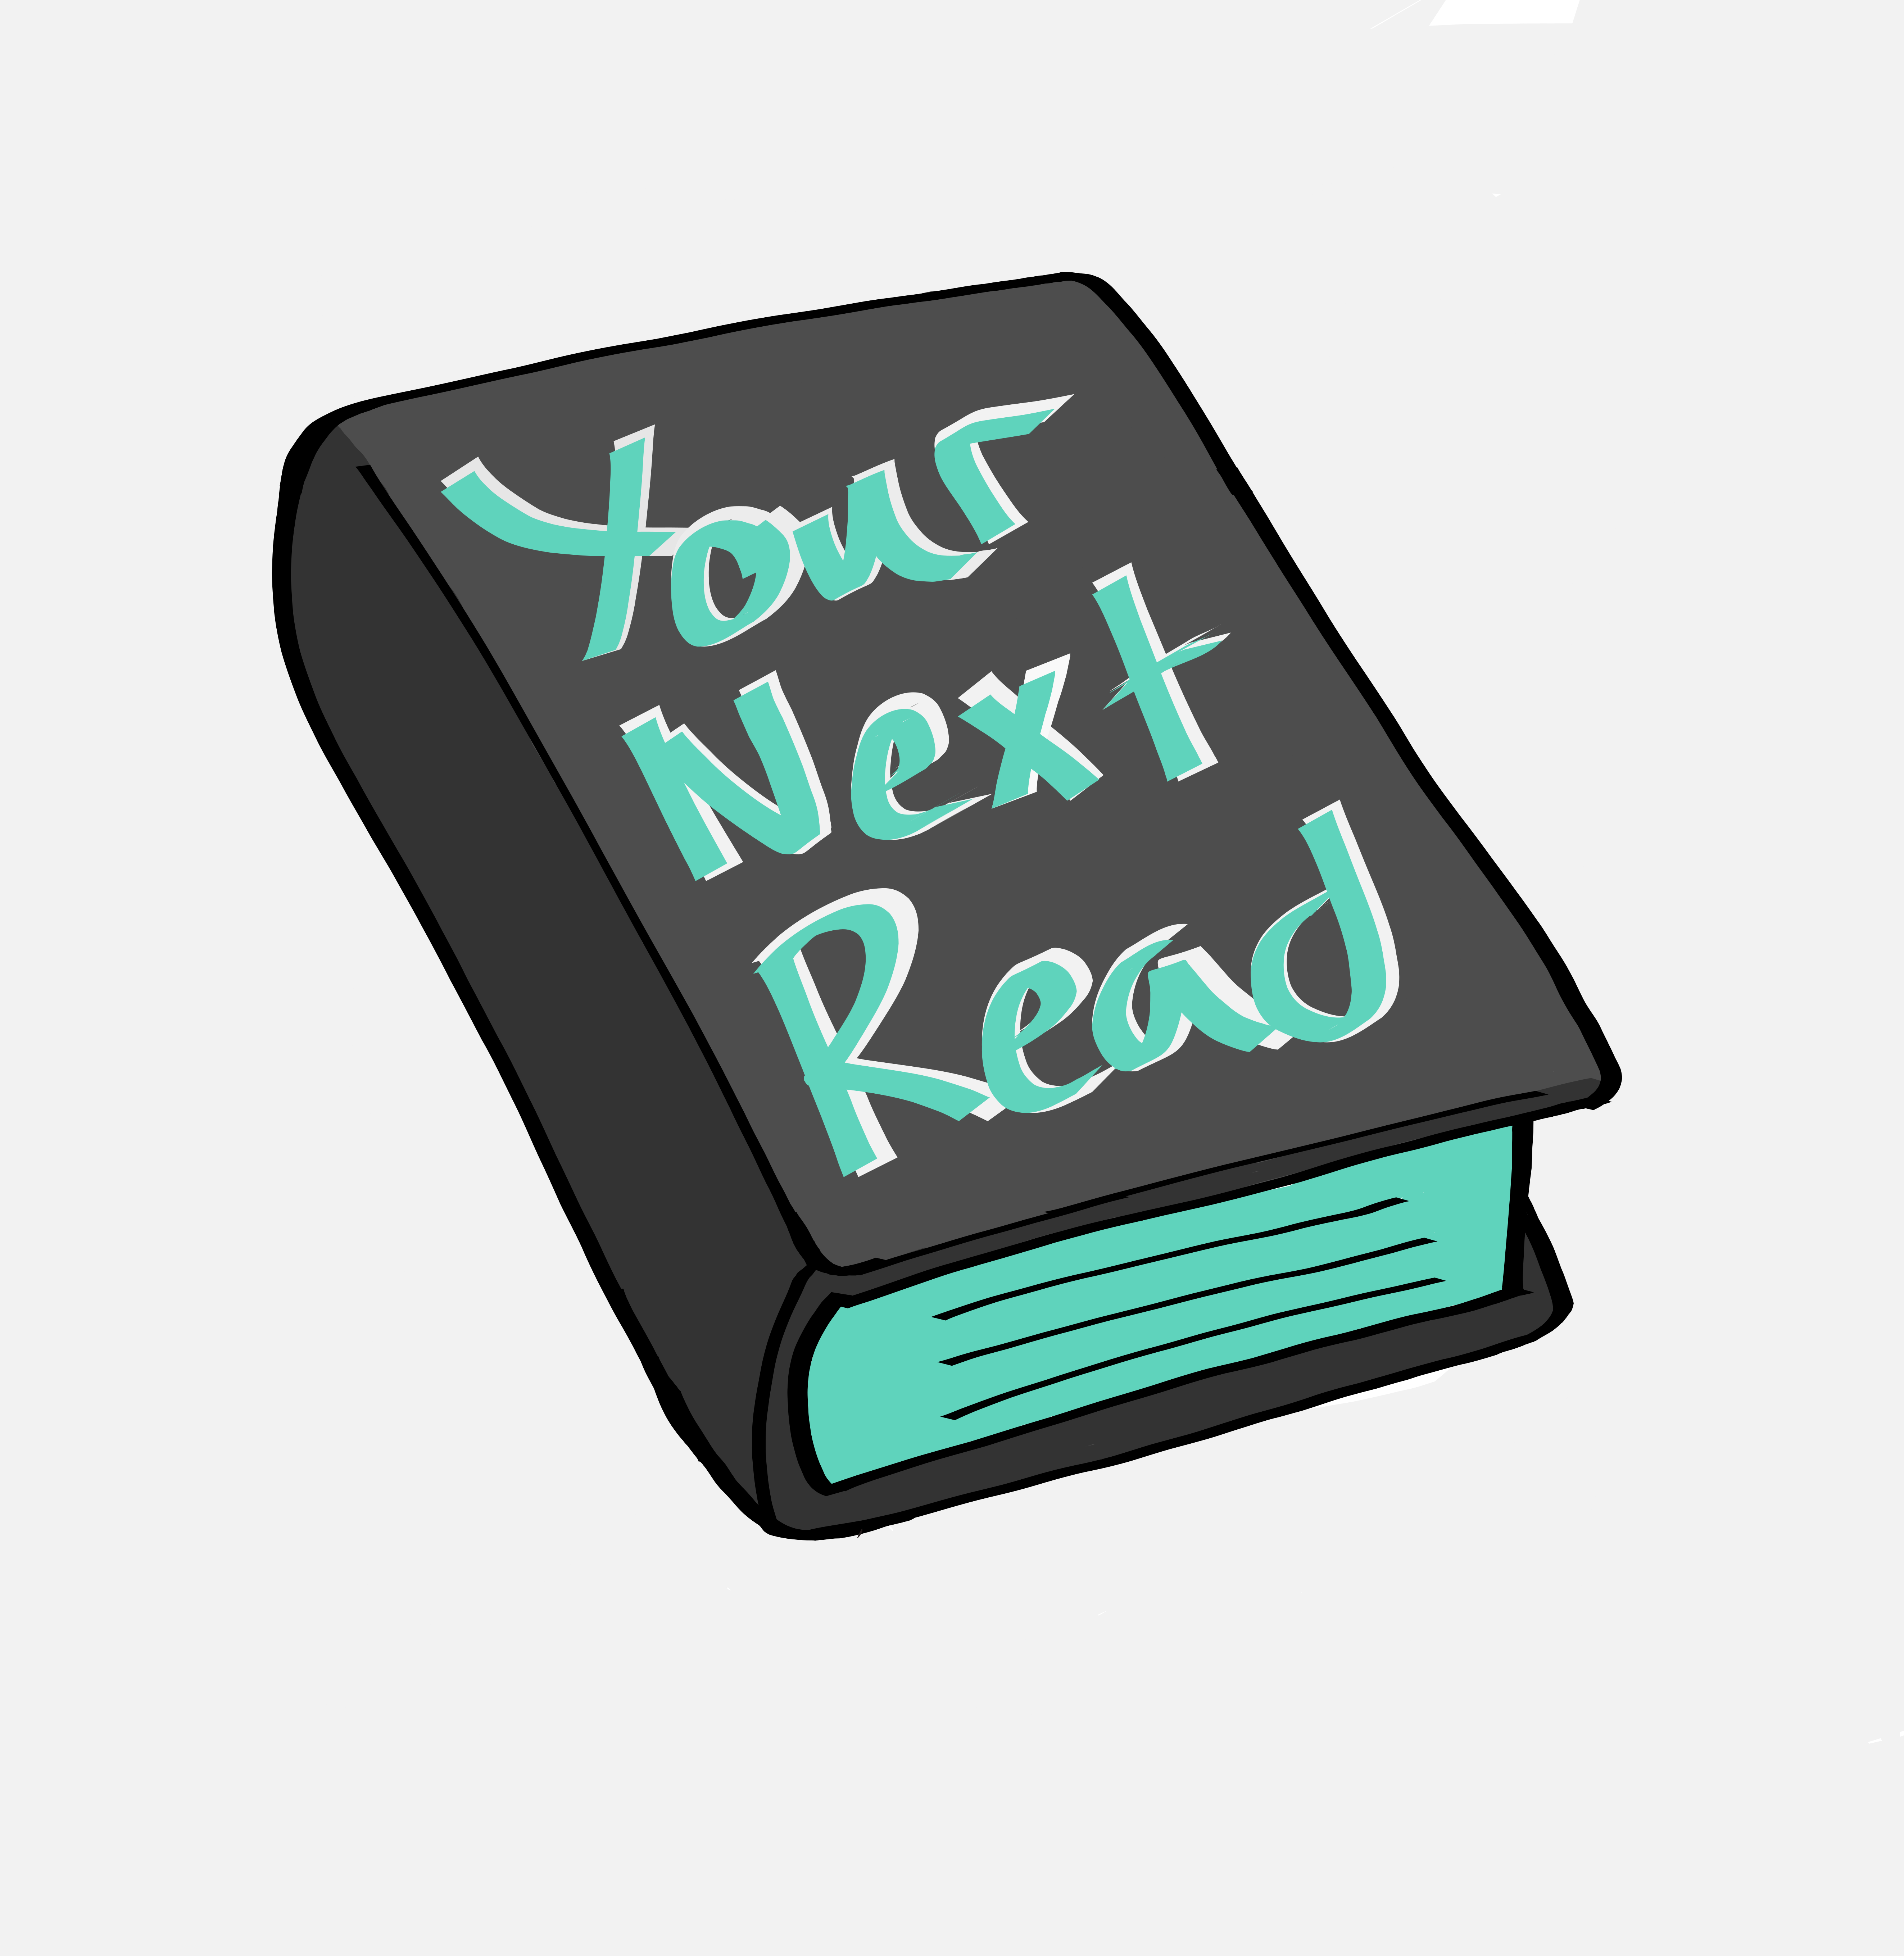 Your
Next
Read